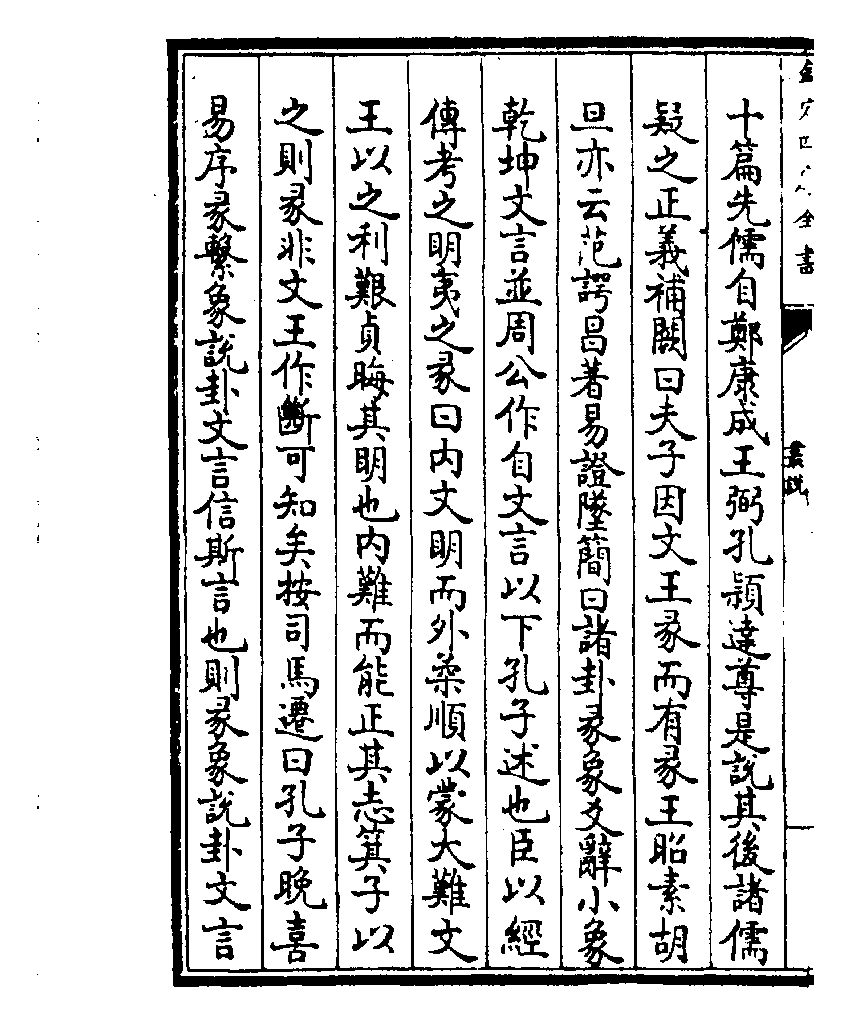 欽定四庫全書
叢說
十篇先儒自鄭康成王弼孔頴達尊是說其後諸儒
疑之正義補闕曰夫子因文王彖而有彖王昭素胡
旦亦云范諤昌著易證墜簡曰諸卦彖象爻辭小象
乾坤文言並周公作自文言以下孔子述也臣以經
傳考之明夷之彖曰内文明而外柔順以蒙大難文
王以之利艱貞晦其明也内難而能正其志箕子以
之則彖非文王作斷可知矣按司馬遷曰孔子晚喜
易序彖繫象說卦文言信斯言也則彖象說卦文言